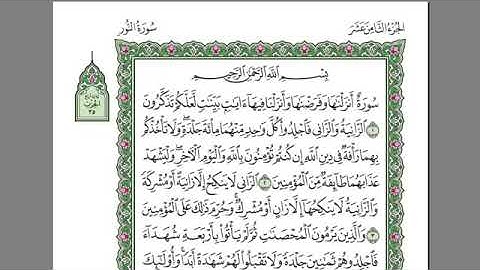 الجزء الثامن عشر
سورة النور
بِسْمِ اللَّهِ الرَّحْمَٰنِ الرَّحِيمِ
سُورَةٌ أَنزَلْنَاهَا وَفَرَضْنَاهَا وَأَنزَلْنَا فِيهَا آيَاتٍ بَيِّنَاتٍ لَّعَلَّكُمْ تَذَكَّرُونَ
١ الزَّانِيَةُ وَالزَّانِي فَاجْلِدُوا كُلَّ وَاحِدٍ مِّنْهُمَا مِائَةَ جَلْدَةٍ وَلَا تَأْخُذْكُم
بِهِمَا رَأْفَةٌ فِي دِينِ اللَّهِ إِن كُنتُمْ تُؤْمِنُونَ بِاللَّهِ وَالْيَوْمِ الْآخِرِ وَلْيَشْهَدْ
عَذَابَهُمَا طَائِفَةٌ مِّنَ الْمُؤْمِنِينَ ٢ الزَّانِي لَا يَنكِحُ إِلَّا زَانِيَةً أَوْ مُشْرِكَةً
وَالزَّانِيَةُ لَا يَنكِحُهَا إِلَّا زَانٍ أَوْ مُشْرِكٌ وَحُرِّمَ ذَٰلِكَ عَلَى الْمُؤْمِنِينَ
٣ وَالَّذِينَ يَرْمُونَ الْمُحْصَنَاتِ ثُمَّ لَمْ يَأْتُوا بِأَرْبَعَةِ شُهَدَاءَ
فَاجْلِدُوهُمْ ثَمَانِينَ جَلْدَةً وَلَا تَقْبَلُوا لَهُمْ شَهَادَةً أَبَدًا وَأُولَٰئِكَ
الحزب
٣٥